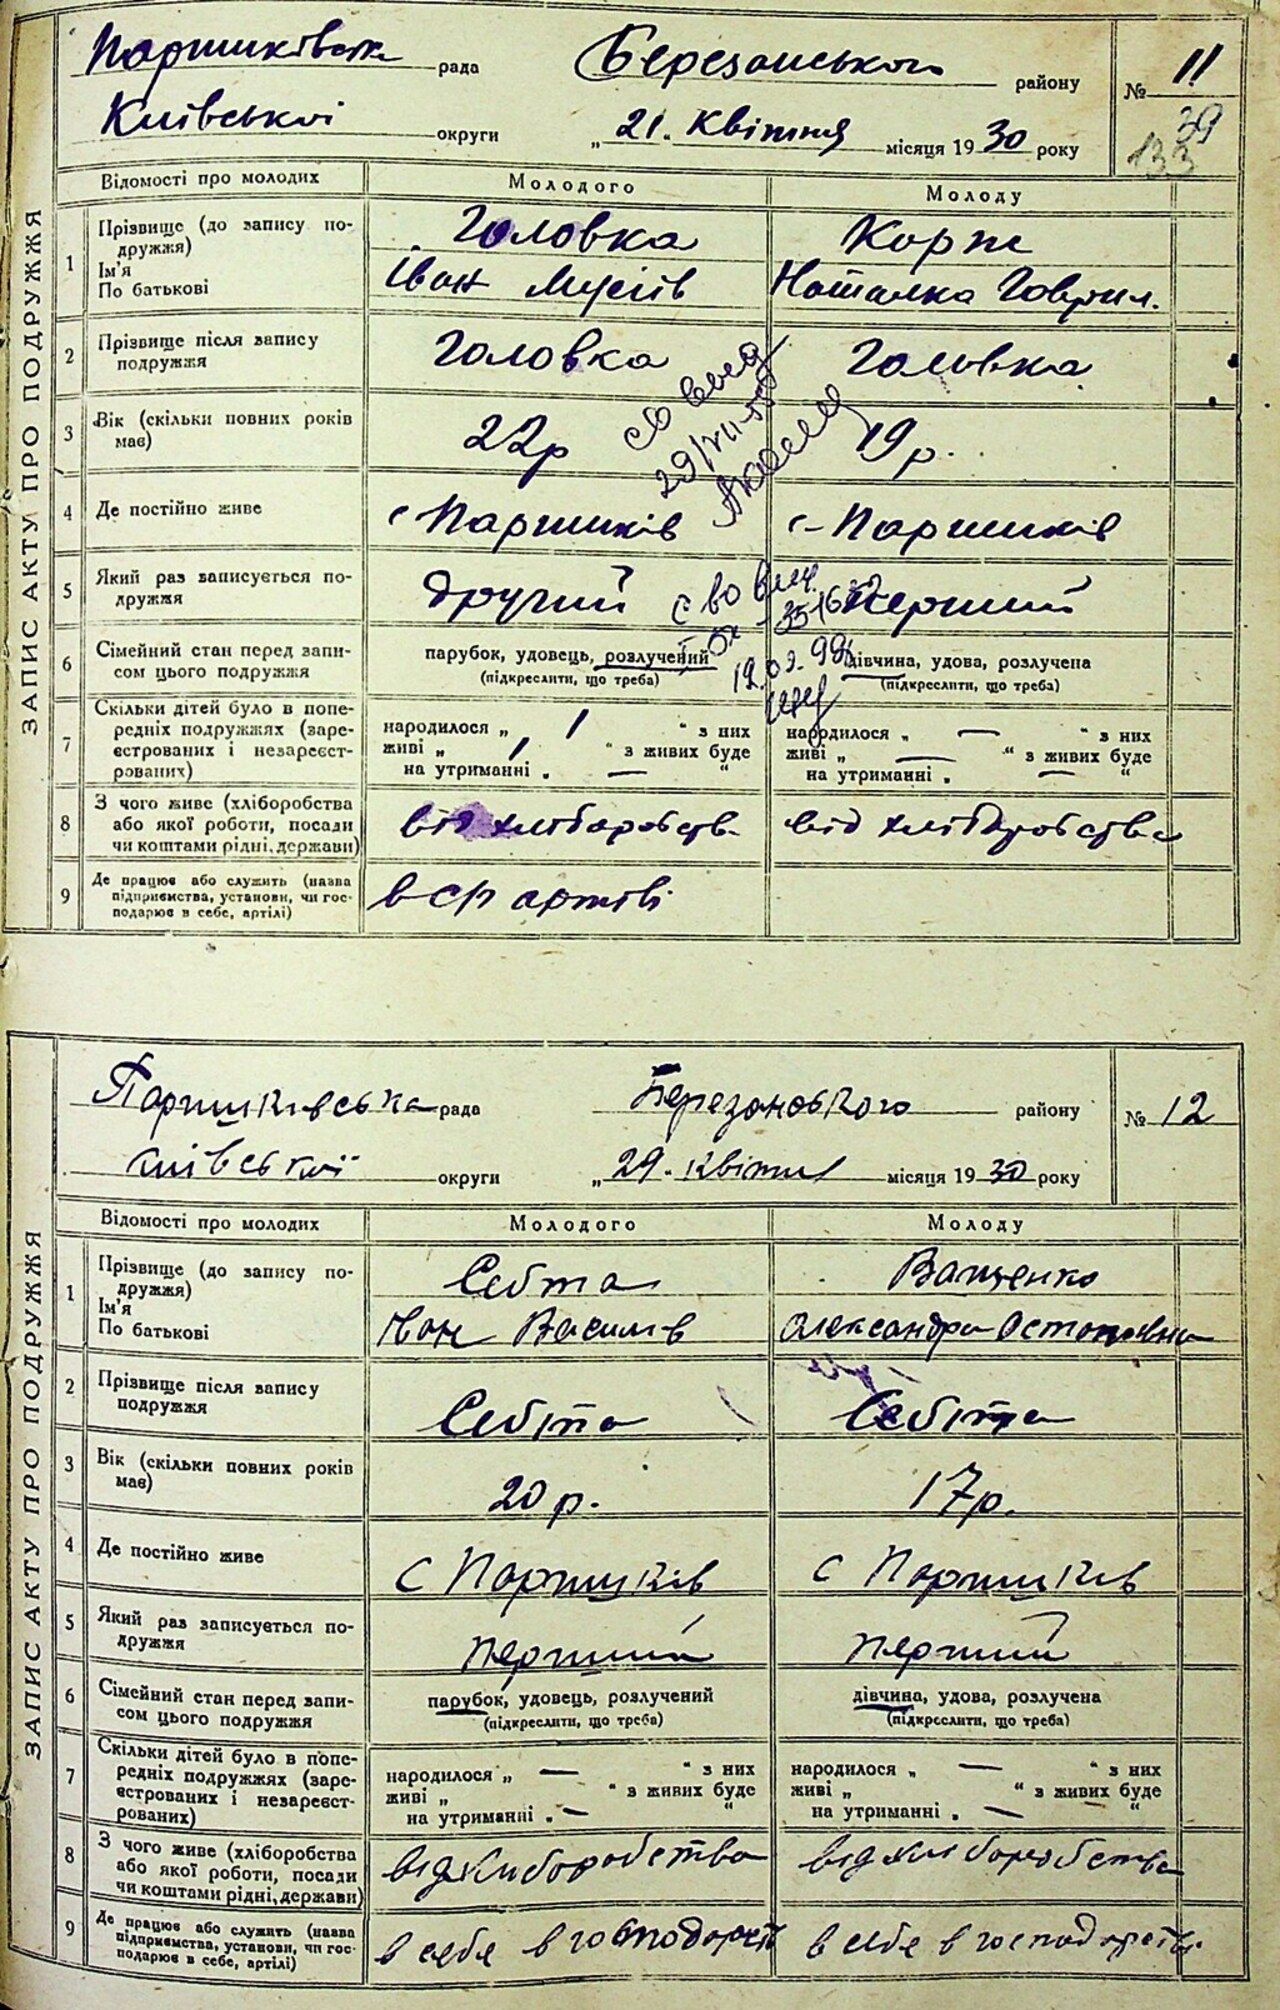 Паришківська рада Березанського району № 11
39
133
Київської округи „ 21 „ Квітня місяця 1930 року
ЗАПИС АКТУ ПРО ПОДРУЖЖЯ
Відомості про молодих Молодого Молоду
1 Прізвище (до запису по-
дружжя) Головка Корж
Ім'я
По батькові Іван Мусіїв Наталка Гаврил.
2 Прізвище після запису
подружжя Головка Головка
3 Вік (скільки повних років
має) 22р 19р.
св выд
29/VII-55
4 Де постійно живе с Паришків с-Паришків
5 Який раз записується по-
дружжя другий Перший
с во выд.
12.09.99
6 Сімейний стан перед запи-
сом цього подружжя парубок, удовець, розлучений дівчина, удова, розлучена
(підкреслити, що треба) (підкреслити, що треба)
7 Скільки дітей було в попе-
редніх подружжах (заре-
єстрованих і незареєст-
рованих) народилося „ 1 “ з них народилося „ — “ з них
живі „ 1 “ з живих буде живі „ — “ з живих буде
на утриманні „ — “ на утриманні „ — “
8 З чого живе (хліборобства
або якої роботи, посади
чи коштами рідні, держави) від хліборобств. від хліборобства
9 Де працює або служить (назва
підприємства, установи, чи гос-
подарює в себе, артілі) в СП артілі
Паришківська рада Березанського району № 12
київської округи „ 29. квітня місяця 1930 року
ЗАПИС АКТУ ПРО ПОДРУЖЖЯ
Відомості про молодих Молодого Молоду
1 Прізвище (до запису по-
дружжя) Себта Ващенко
Ім'я
По батькові Іван Василів Олександра Остаповна
2 Прізвище після запису
подружжя Себта Себта
3 Вік (скільки повних років
має) 20 р. 17р.
4 Де постійно живе с Паришків с Паришків
5 Який раз записується по-
дружжя перший перший
6 Сімейний стан перед запи-
сом цього подружжя парубок, удовець, розлучений дівчина, удова, розлучена
(підкреслити, що треба) (підкреслити, що треба)
7 Скільки дітей було в попе-
редніх подружжах (заре-
єстрованих і незареєст-
рованих) народилося „ — “ з них народилося „ — “ з них
живі „ “ з живих буде живі „ “ з живих буде
на утриманні „ — “ на утриманні „ — “
8 З чого живе (хліборобства
або якої роботи, посади
чи коштами рідні, держави) від хліборобства від хліборобства
9 Де працює або служить (назва
підприємства, установи, чи гос-
подарює в себе, артілі) в себе в господарстві в себе в господарстві